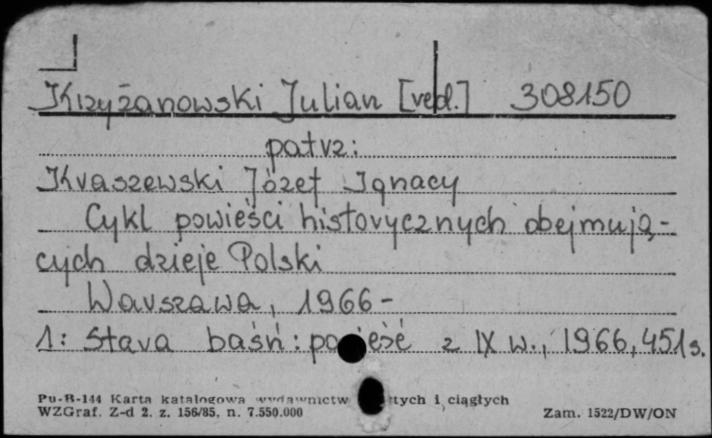 Krzyżanowski Julian [red.] 308150
patrz:
Kraszewski Józef Ignacy
Cykl powieści historycznych obejmują-
cych dzieje Polski
Warszawa, 1966-
1: Stara baśń: powieść z IX w., 1966, 451s.
Pu-B-144 Karta katalogowa wydawnictw tych i ciągłych
WZGraf. Z-d 2. z. 156/85, n. 7.550.000 Zam. 1522/DW/ON